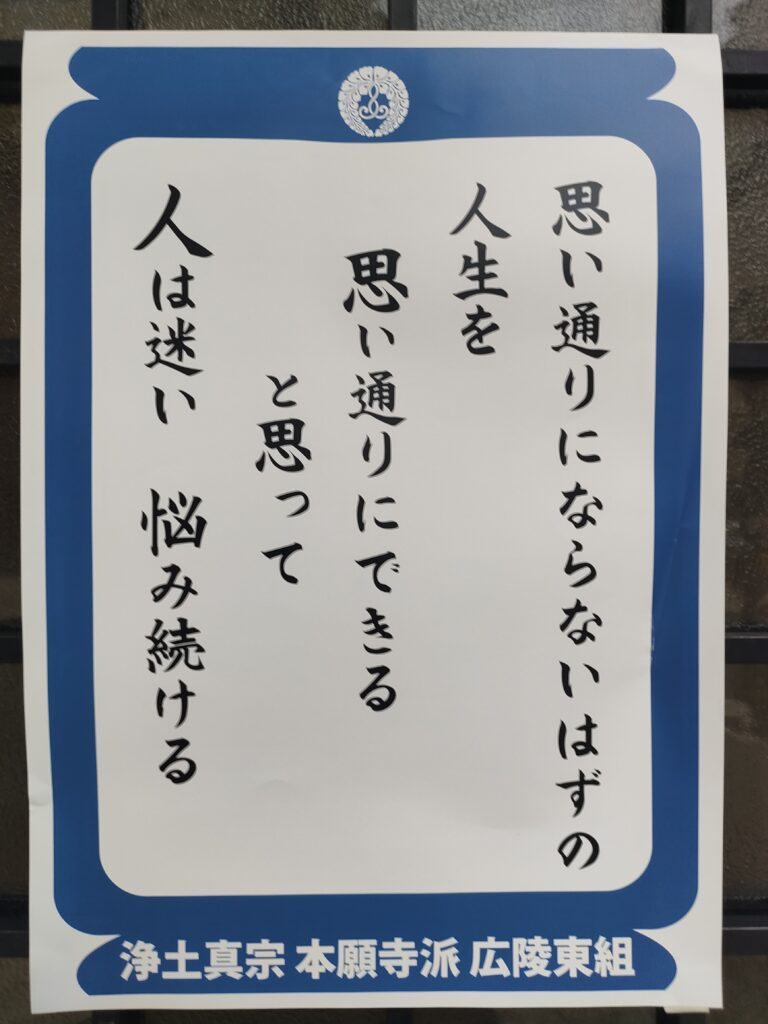 思い通りにならないはずの
人生を
思い通りにできる
と思って
人は迷い　悩み続ける
浄土真宗 本願寺派 広陵東組